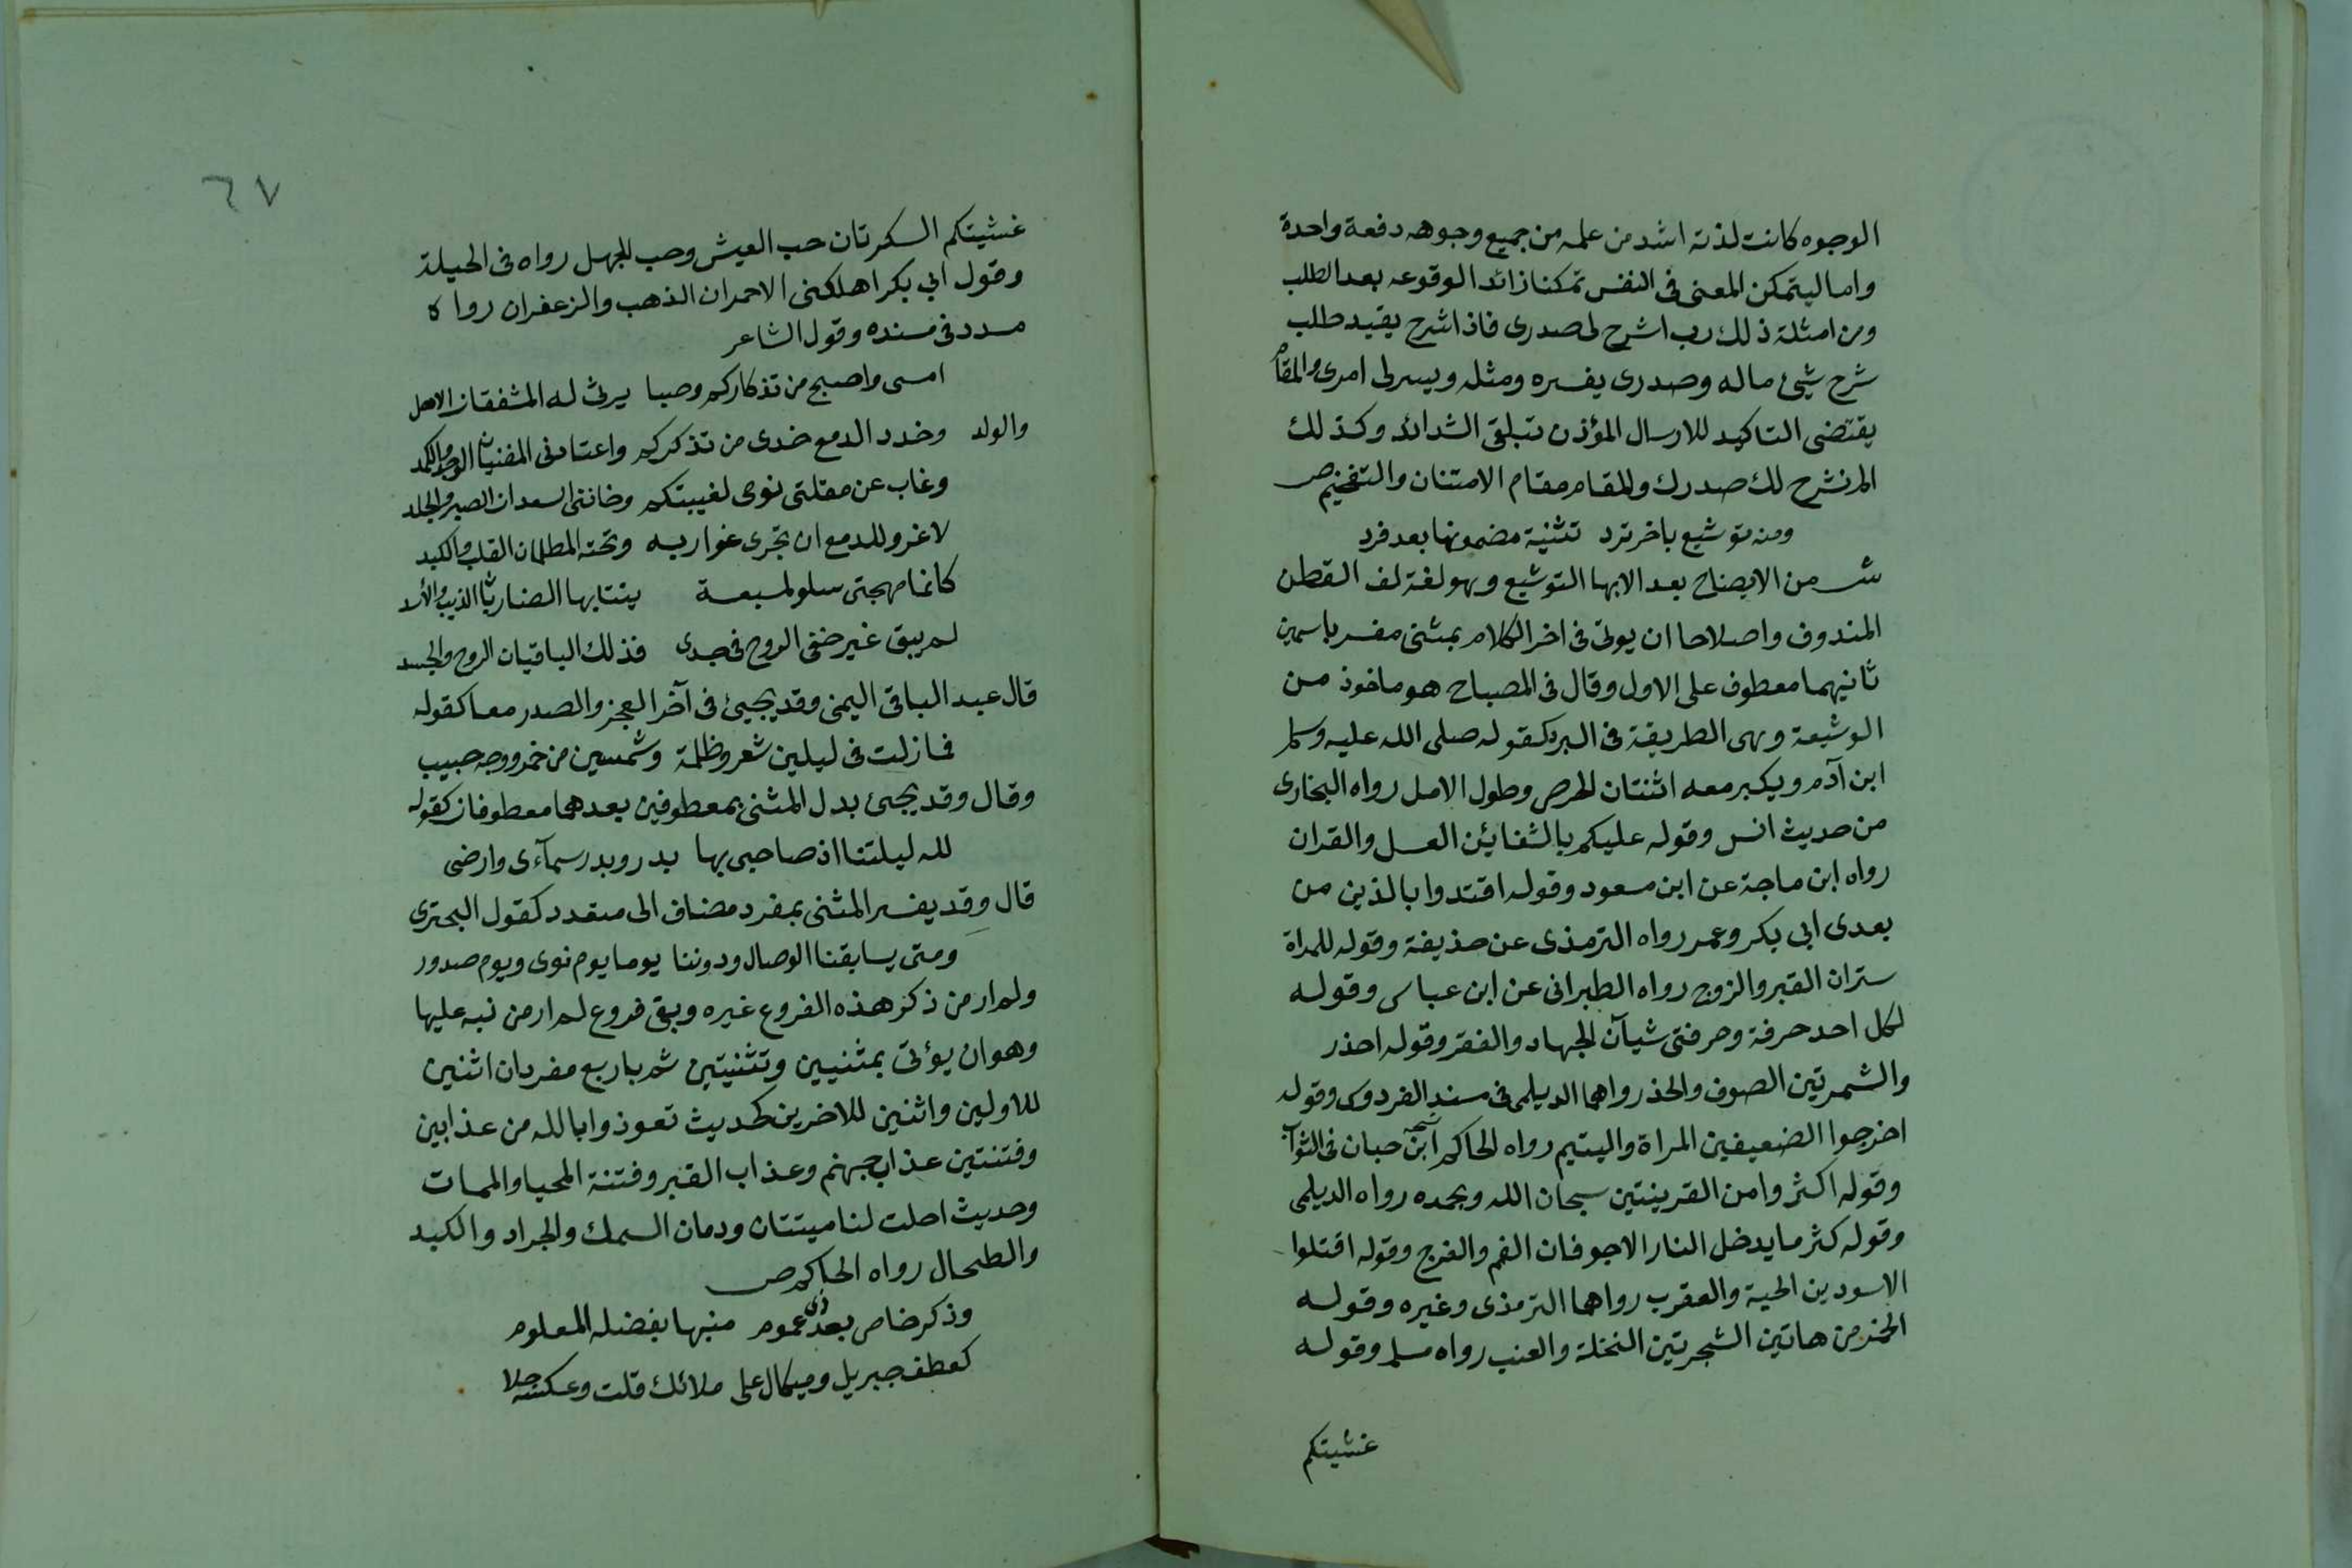 الوجوه كانت لذته اشد من علمه من جميع وجوهه دفعة واحدة
واما ليتمكن المعنى فى النفس تمكنا زائدا لوقوعه بعد الطلب
ومن امثلة ذلك رب اشرح لى صدرى فاذ اشرح يفيد طلب
شرح شيئ ماله وصدرى يفسره ومثله ويسرلى امرى والمقام
يقتضى التاكيد للارسال المؤذن بتلقى الشدائد وكذلك
الم نشرح لك صدرك والمقام مقام الامتنان والتفخيم ص
ومنه توشيع باخر ترد تثنية مضمونها بعد فرد
ش من الايضاح بعد الابها التوشيع وهو لغة لف القطن
المندوف واصلاحا ان يوتى فى اخر الكلام بمثنى مفسر باسمين
ثانيهما معطوف على الاول وقال فى المصباح هو ماخوذ من
الوشيعة وهى الطريقة فى البرد كقوله صلى الله عليه وسلم
ابن آدم ويكبر معه اثنتان الحرص وطول الامل رواه البخارى
من حديث انس وقوله عليكم بالشفائين العسل والقران
رواه ابن ماجة عن ابن مسعود وقوله اقتدوا بالذين من
بعدى ابى بكر وعمر رواه الترمذى عن حذيفة وقوله للمراة
ستران القبر والزوج رواه الطبرانى عن ابن عباس وقوله
لكل احد حرفة وحرفتى شيآن الجهاد والفقر وقوله احذر
والشهرتين الصوف والخز رواهما الديلمى فى مسند الفردوس وقوله
اخرجوا الضعيفين المراة واليتيم رواه الحاكم ابن حبان فى الثواب
وقوله اكثروا من القرينتين سبحان الله وبحمده رواه الديلمى
وقوله كثر ما يدخل النار الاجوفان الفم والفرج وقوله اقتلوا
الاسودين الحية والعقرب رواهما الترمذى وغيره وقوله
الخمر من هاتين الشجرتين النخلة والعنب رواه مسلم وقوله
غشيتكم
٦٧
غشيتكم السكرتان حب العيش وحب الجهل رواه فى الحيلة
وقول ابي بكر اهلكنى الاحمران الذهب والزعفران رواه
مسدد فى مسنده وقول الشاعر
امسى واصبح من تذكاركم وصبا يرثى له المشفقان الاهل
والولد وخدد الدمع خدى من تذكركم واعتادنى المضنيان الوجد والكمد
وغاب عن مقلتى نومى لغيبتكم وخاننى السعدان الصبر والجلد
لا غرو للدمع ان تجرى غواربه وتحته المظلمان القلب والكبد
كانما مهجتى سلو لمسبعة ينتابها الضاريان الذيب والأسد
لم يبق غير خفى الروح فى جسدى فذلك الباقيان الروح والجسد
قال عبد الباقى اليمنى وقد يجيئ فى آخر العجز والصدر معا كقوله
فما زلت فى ليلين شعر وظلمة وشمسين من خمر ووجه حبيب
وقال وقد يجيئ بدل المثنى بمعطوفين بعدهما معطوفان كقوله
لله ليلتنا اذ صاحبى بها بدر وبدر سمآءى وارضى
قال وقد يفسر المثنى بمفرد مضاف الى متعدد كقول البحترى
ومتى يسابقنا الوصال ودوننا يوما يوم نوى ويوم صدور
ولم ار من ذكر هذه الفروع غيره وبقى فروع لم ار من نبه عليها
وهو ان يؤتى بمثنيين وتثنيتين ثم باربع مفردان اثنين
للاولين واثنين للاخرين كحديث تعوذوا بالله من عذابين
وفتنتين عذاب جهنم وعذاب القبر وفتنة المحيا والممات
وحديث احلت لنا ميتتان ودمان السمك والجراد والكبد
والطحال رواه الحاكم ص
وذكر خاص بعد ذى عموم منبها بفضله المعلوم
كعطف جبريل وميكال على ملائك قلت وعكسه جلا